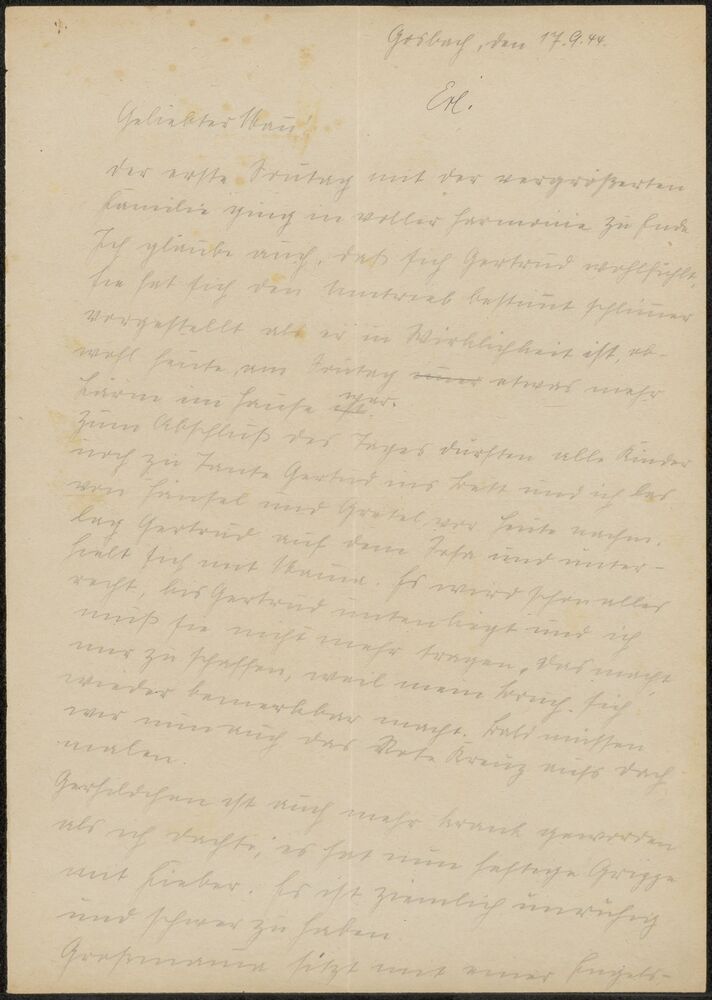 Gosbach, den 17.9.44.
Erl.
Geliebter Mann!
Der erste Sonntag mit der vergrößerten
Familie ging in voller Harmonie zu Ende
Ich glaube auch, daß sich Gertrud wohlfühlt,
sie hat sich den Umtrieb bestimmt schlimmer
vorgestellt als er in Wirklichkeit ist, ob-
wohl heute, am Sonntag etwas mehr
Lärm im Hause war.
Zum Abschluß des Tages durften alle Kinder
noch zu Tante Gertrud ins Bett und ich las
von Hänsel und Gretel vor. Heute nachm.
lag Gertrud auf dem Sofa und unter-
hielt sich mit Mama. Es wird schon alles
recht, bis Gertrud unten liegt und ich
muß sie nicht mehr tragen, das macht
mir zu schaffen, weil mein Bruch sich
wieder bemerkbar macht. Bald müssen
wir nun auch das Rote Kreuz aufs Dach
malen.
Gerhildchen ist auch mehr krank geworden
als ich dachte, es hat nun heftige Grippe
mit Fieber. Es ist ziemlich unruhig
und schwer zu haben.
Grosmama sitzt mit einer Engels-